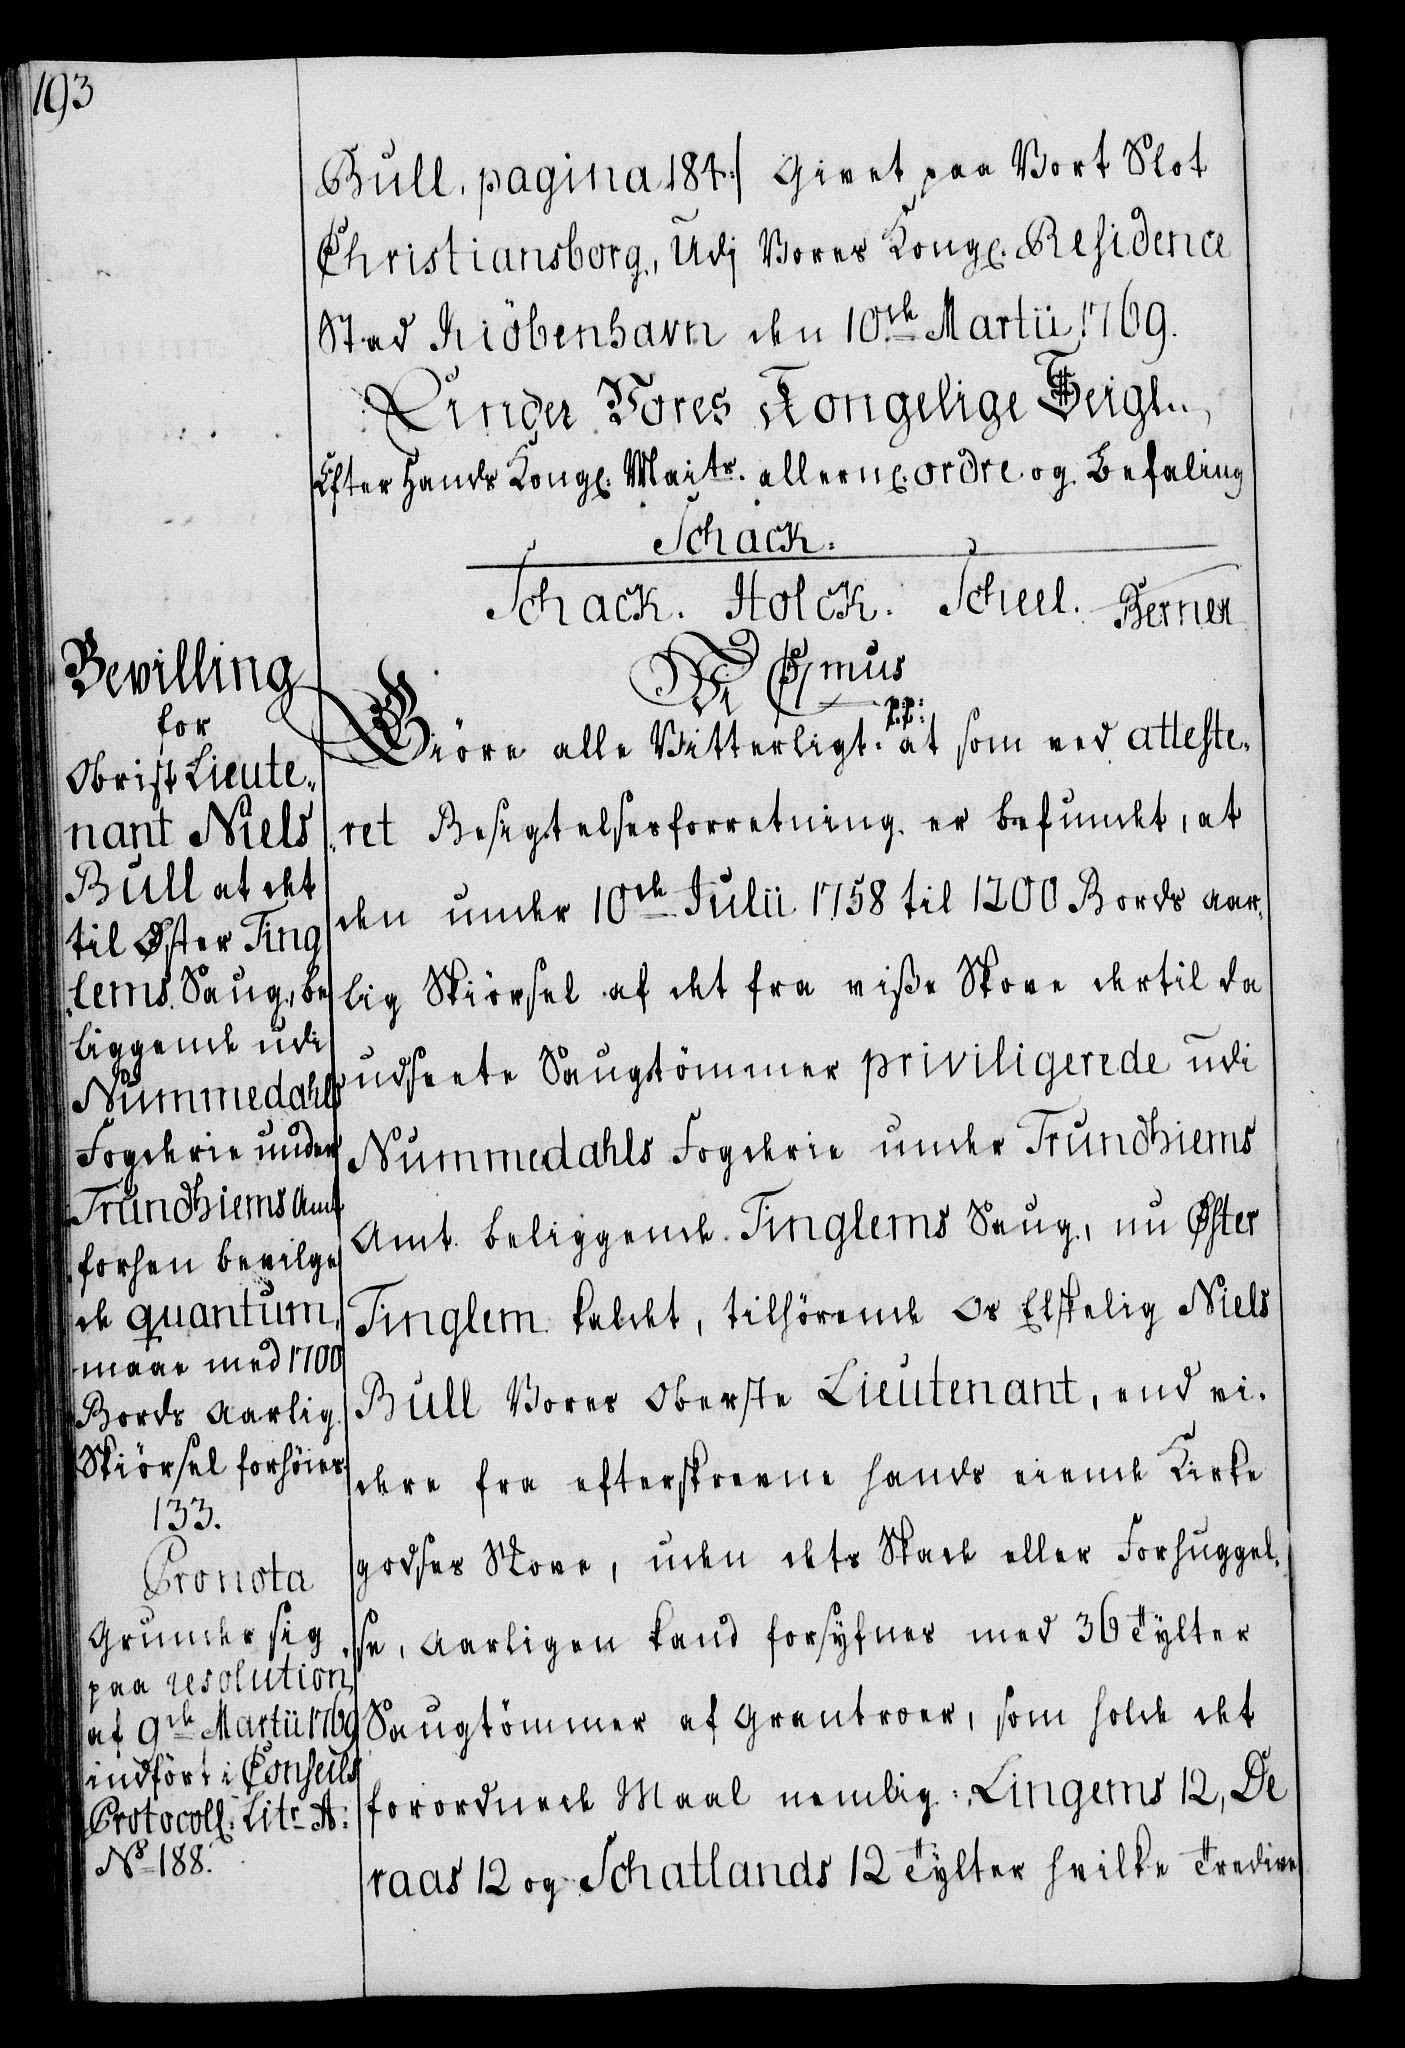 193
Bull. pagina 184:/ Givet paa Vort Slot
Christiansborg, Udj Vores Kongl. Residence
Stad Kiöbenhavn den 10de Martii 1769.
Under Vores Kongelige Seigl.
Efter Hands Kongl. Maits. allern. ordre og Befaling
Schack.
Schack. Holck. Scheel. Berner
Bevilling
for
Obrist Lieute„
nant Niels
Bull at det
til Øster Ting
„lems Saug, be
liggende udi
Nummedahls
Fogderie under
Trundhiems Amt
forhen bevilge
de quantum,
maae med 1700
Bords Aarlig
Skiörsel forhöies
133.
Pronota
Grunder sig
paa resolution
af 9de Martii 1769
indfört i Conseils
Protocoll: Litr A:
No 188.
Vi C7mus
p.p:
Giöre alle Vitterligt: at som ved atteste„
„ret Besigtelsesforretning er befundet, at
den under 10de Julii 1758 til 1200 Bords aar„
lig Skiörsel af det fra visse Skove dertil da
udseete Saugtömmer priviligerede udi
Nummedahls Fogderie under Trundhiems
Amt beliggende Tinglems Saug, nu Øster
Tinglem kaldet, tilhörende Os Elskelig Niels
Bull Vores Oberste Lieutenant, end vi„
dere fra efterskrevne hands eiende Kirke
godses Skove, uden dets Skade eller Forhuggel„
„se, Aarligen kand forsyfnes med 36 Tylter
Saugtömmer af Grantroer, som holde det
forordnede Maal nemlig: Lingems 12, De
raas 12 og Schatlands 12 Tylter hvilke Tredive